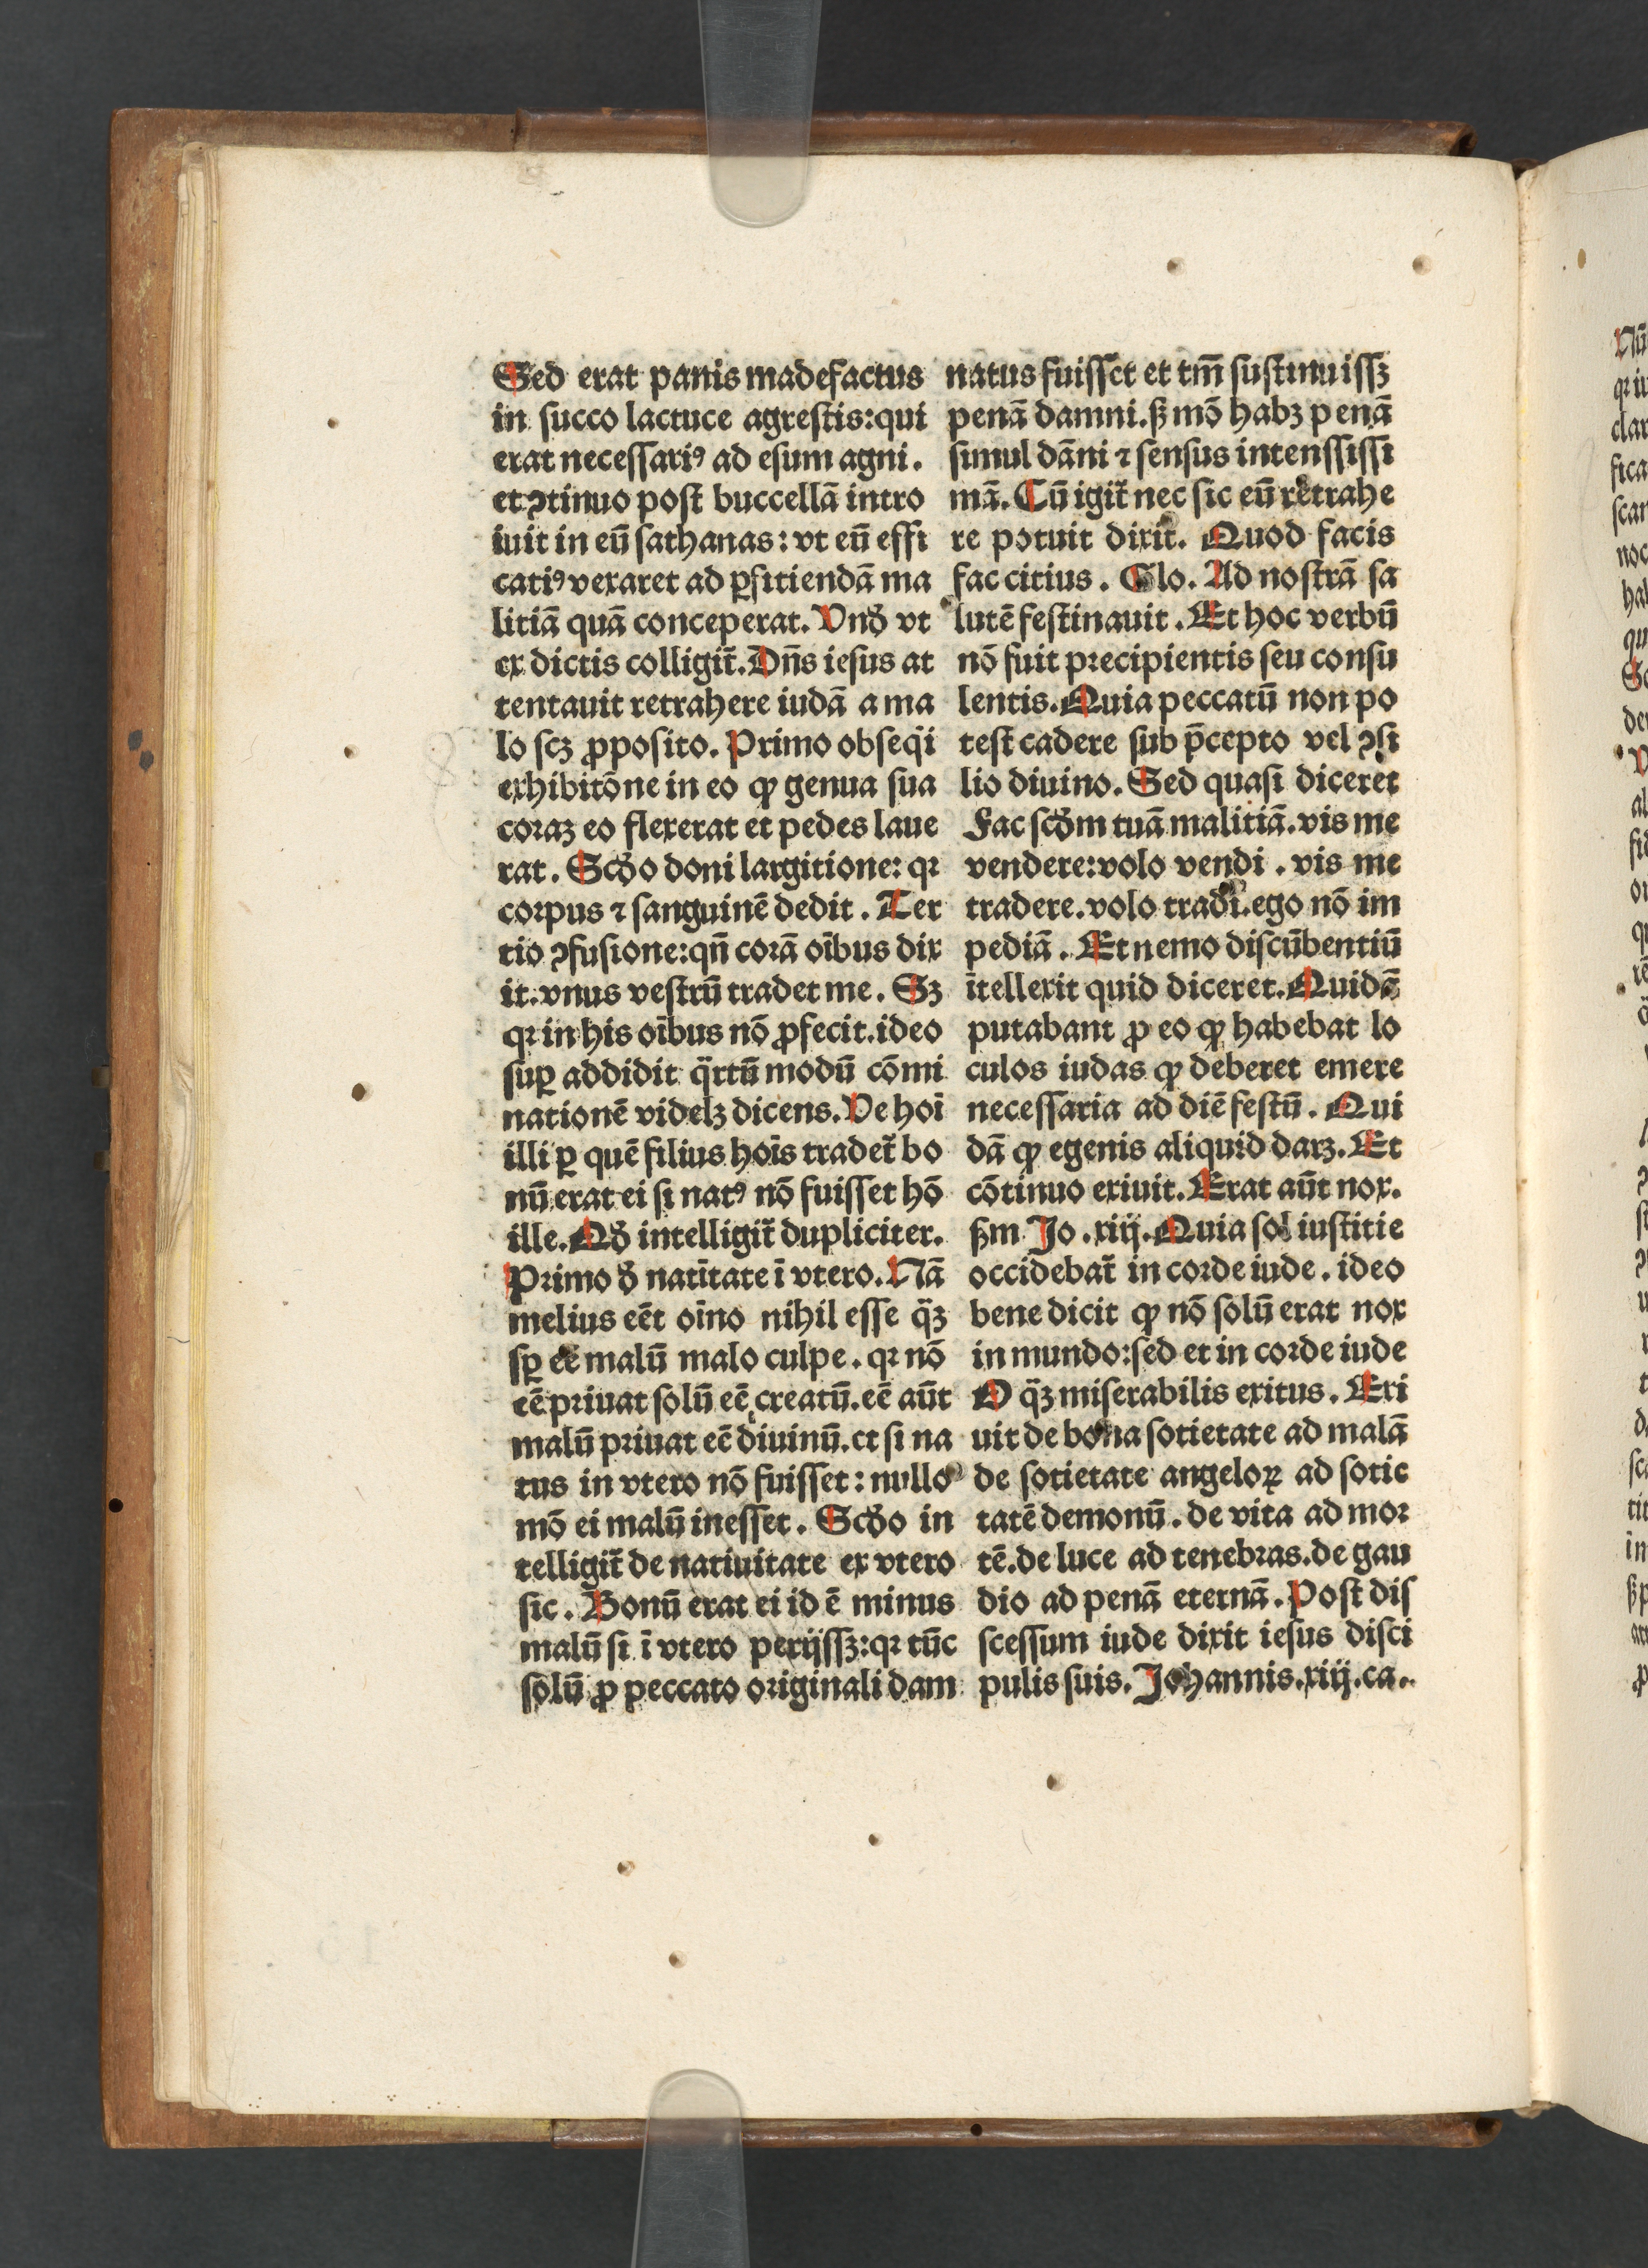 Sed erat panis madefactus
in succo lactuce agreſtis:qui
erat neceſſariꝰ ad eſum agni.
et ꝯtinuo poſt buccellā intro
iuit in eū ſathanas: vt eū effi
catiꝰ vexaret ad ꝑfitiendā ma
litiā quā conceperat. Vnð vt
ex dictis colligit᷑. Dn̄s ieſus at
tentauit retrahere iudā a ma
lo ſcꝫ ꝓpoſito. Primo obſeq̇i
exhibitōne in eo ꝙ genua ſua
coraꝫ eo flexerat et pedes laue
rat. Scðo doni largitione: qꝛ
corpus ⁊ ſanguinē dedit. Ter
tio ꝯfuſione:qn̄ corā oībus dix
it:vnus veſtrū tradet me. Sꝫ
qꝛ in his oībus nō ꝓfecit.ideo
ſuꝑ addidit q̈rtū modū cōmi
nationē videlꝫ dicens. Ve hoī
illi ꝑ quē filius hoīs tradet᷑ bo
nū erat ei ſi natꝰ nō fuiſſet hō
ille. Qð intelligit᷑ dupliciter.
Primo ð natītate ī vtero. Nā
melius eēt oīno nihil eſſe q̈ꝫ
ſꝑ eē malū malo culpe. qꝛ nō
eē priuat ſolū eē creatū.eē aūt
malū priuat eē diuinū.et ſi na
tus in vtero nō fuiſſet: nullo
mō ei malū ineſſet. Scðo in
telligit᷑ de natiuitate ex vtero
ſic. Bonū erat ei id ē minus
malū ſi ī vtero perijſſꝫ:qꝛ tūc
ſolū ꝓ peccato originali dam
natus fuiſſet et tm̄ ſuſtinuiſſꝫ
penā damni.ꝭ mō habꝫ penā
ſimul dāni ⁊ ſenſus intenſſiſſi
mā. Cū igit᷑ nec ſic eū retrahe
re potuit dixit. Quod facis
fac citius. Glo. Ad noſtrā ſa
lutē feſtinauit. Et hoc verbū
nō fuit precipientis ſeu conſu
lentis. Quia peccatū non po
teſt cadere ſub p̄cepto vel ꝯſi
lio diuino. Sed quaſi diceret
Fac ſcðm tuā malitiā.vis me
vendere:volo vendi. vis me
tradere.volo tradi.ego nō im
pediā. Et nemo diſcūbentiū
ītellexit quid diceret. Quidā
putabant ꝓ eo ꝙ habebat lo
culos iudas ꝙ deberet emere
neceſſaria ad diē feſtū. Qui
dā ꝙ egenis aliquid darꝫ. Et
cōtinuo exiuit. Erat aūt nox.
ẞm Jo. xiij. Quia ſol iuſtitie
occidebat᷑ in corde iude. ideo
bene dicit ꝙ nō ſolū erat nox
in mundo:ſed et in corde iude
O q̈ꝫ miſerabilis exitus. Exi
uit de bona ſotietate ad malā
de ſotietate angeloꝝ ad ſotie
tatē demonū. de vita ad mor
tē.de luce ad tenebras.de gau
dio ad penā eternā. Poſt diſ
ſceſſum iude dixit ieſus diſci
pulis ſuis. Johannis.xiij.ca.